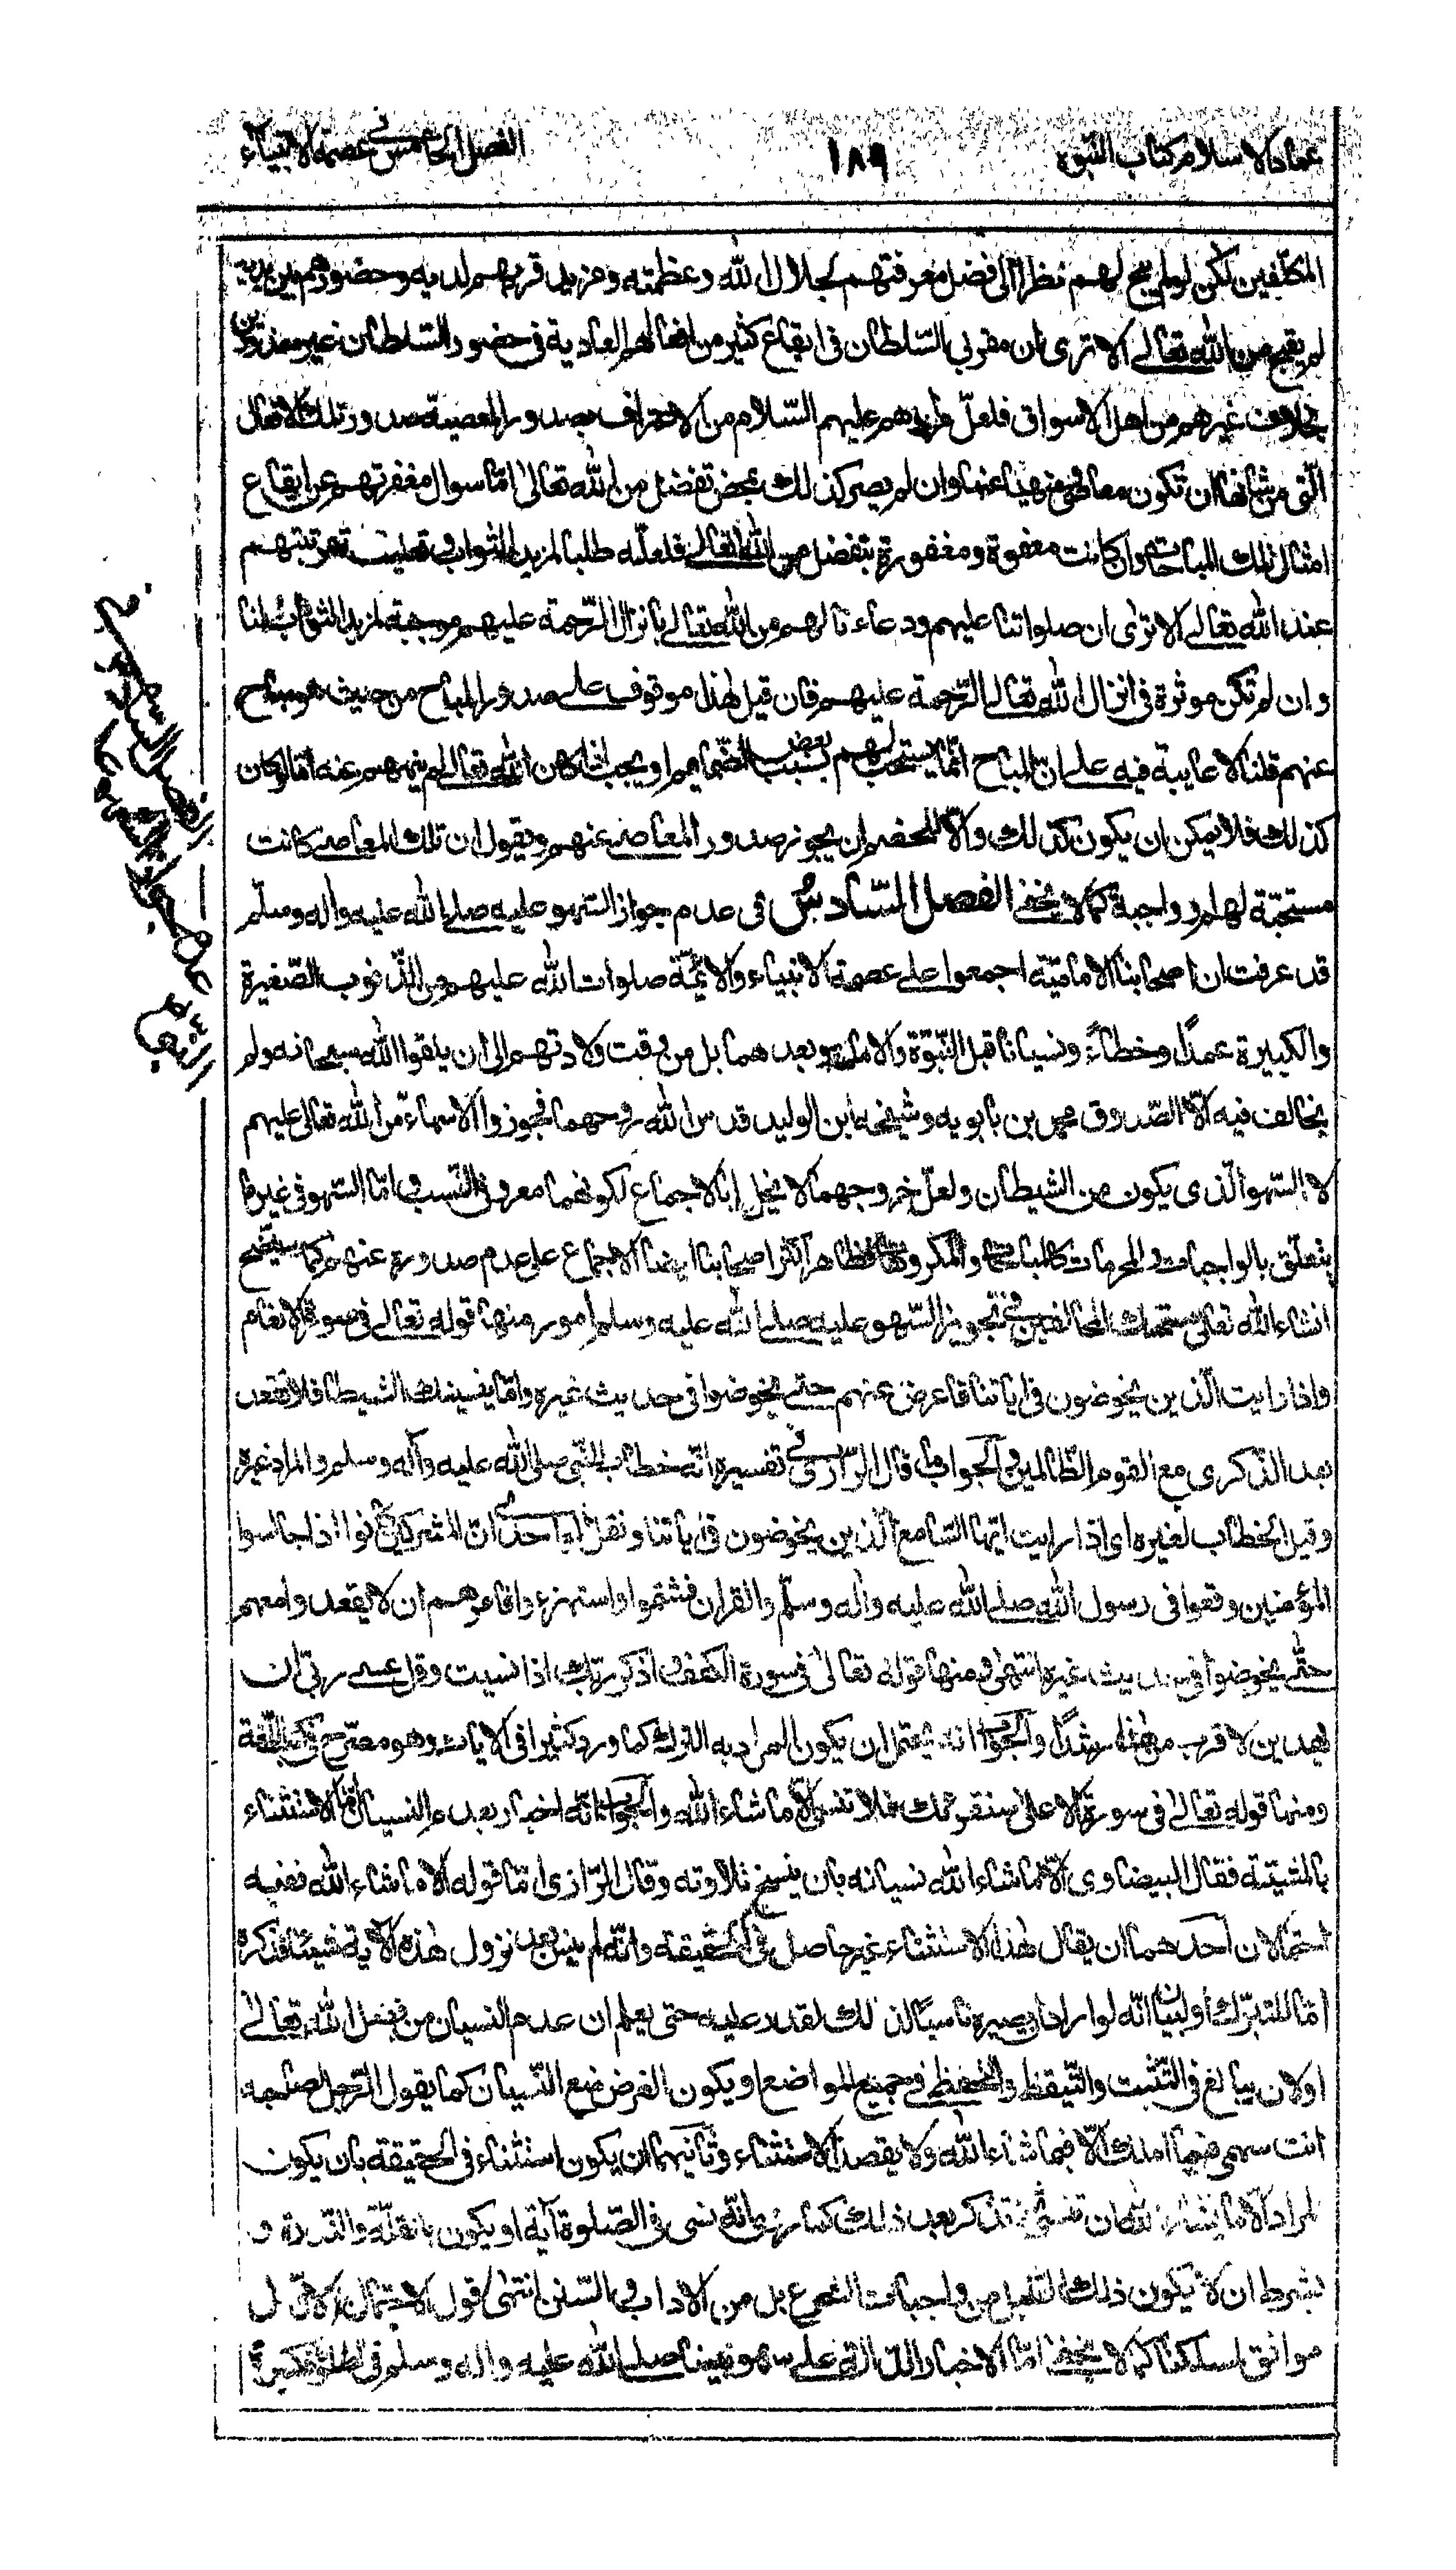 عماد الاسلام كتاب النبوة
١٨٩
الفصل الخامس فى عصمة الانبياء
المكلفين لكن لو لم يبح لهم نظراً الى فضل معرفتهم بجلال الله وعظمته ومزيد قربهم لديه وحضورهم بين يديه
لم يقبح من الله تعالى الا ترى ان مقربى السلطان فى ايقاع كثير من افعالهم العادية فى حضور السلطان غير معذورين
بخلاف غيرهم من اهل الاسواق فلعل مرادهم عليهم السلام من الاعتراف بصدور المعصية صدور تلك الافعال
التى من شانها ان تكون معاصى منهيا عنها وان لم يصر كذلك بمحض تفضل من الله تعالى اما سوال مغفرتهم عن ايقاع
امثال تلك المباحات وان كانت معفوة ومغفورة بتفضل من الله تعالى فلعله طلبا لمزيد الثواب وتعليت مرتبتهم
عند الله تعالى الا ترى ان صلواتنا عليهم ودعاءنا لهم من الله تعالى بانزال الرحمة عليهم موجبة لمزيد الثواب لنا
وان لم تكن موثرة فى انزال الله تعالى الرحمة عليهم فان قيل هذا موقوف على صدور المباح من حيث هو مباح
عنهم قلنا لا عايبة فيه على ان المباح انما يستحب لهم بسبب بعض الضمايم او يجب اذا كان الله تعالى لم ينههم عنه اما لو كان
كذلك فلا يمكن ان يكون كذلك والا للخصم ان يجوز صدور المعاصى عنهم ويقول ان تلك المعاصى كانت
مستحبة لهم او واجبة كما لا يخفى الفصل السادس فى عدم جواز السهو عليه صلى الله عليه واله وسلم
قد عرفت ان اصحابنا الامامية اجمعوا على عصمة الانبياء والائمة صلوات الله عليهم من الذنوب الصغيرة
والكبيرة عمداً وخطاءً ونسيانا قبل النبوة والامامة وبعدهما بل من وقت ولادتهم الى ان يلقوا الله سبحانه ولم
يخالف فيه الا الصدوق محمد بن بابويه وشيخه ابن الوليد قدس الله روحهما فجوزوا الاسهاء من الله تعالى عليهم
لا السهو الذى يكون من الشيطان ولعل خروجهما لا يخل بالاجماع لكونهما معروفى النسب واما السهو فى غير ما
يتعلق بالواجبات والمحرمات كالمباحات والمكروهات فظاهر اكثر اصحابنا ايضا الاجماع على عدم صدوره عنهم كما سيتضح
انشاء الله تعالى متمسك المخالفين فى تجويز السهو عليه صلى الله عليه وسلم امور منها قوله تعالى فى سورة الانعام
واذا رايت الذين يخوضون فى اياتنا فاعرض عنهم حتى يخوضوا فى حديث غيره واما ينسينك الشيطان فلا تقعد
بعد الذكرى مع القوم الظالمين والجواب ما قال الرازى فى تفسيره انه خطاب للنبى صلى الله عليه وآله وسلم والمراد غيره
وقيل الخطاب لغيره اى اذا رايت ايها السامع الذين يخوضون فى اياتنا ونقل الواحدى ان المشركين كانوا اذا جالسوا
المؤمنين وقعوا فى رسول الله صلى الله عليه واله وسلم والقران فشتموا واستهزءوا فامرهم ان لا يقعدوا معهم
حتى يخوضوا فى حديث غيره انتهى ومنها قوله تعالى فى سورة الكهف واذكر ربك اذا نسيت وقل عسى ربى ان
يهدين لاقرب من هذا رشداً والجواب انه يحتمل ان يكون المراد به الترك كما ورد كثيرا فى الايات وهو مصرح فى كتب اللغة
ومنها قوله تعالى فى سورة الاعلى سنقرئك فلا تنسى الا ما شاء الله والجواب انه اخبار بعدم النسيان واما الاستثناء
بالمشيته فقال البيضاوى الا ما شاء الله نسيانه بان ينسخ تلاوته وقال الرازى اما قوله الا ما شاء الله ففيه
احتمالان احدهما ان يقال هذا الاستثناء غير حاصل فى الحقيقة وانه لم ينس بعد نزول هذه الاية شيئا فذكره
اما للتبرك او لبيان انه لو اراد ان يصيره ناسيا لذلك لقدر عليه حتى يعلم ان عدم النسيان من فضل الله تعالى
او لان يبالغ فى التثبت والتيقظ والتحفظ فى جميع المواضع او يكون الغرض منع النسيان كما يقول الرجل لصاحبه
انت سهمى فيما املك الا فيما شاء الله ولا يقصد الاستثناء وثانيهما ان يكون استثناء فى الحقيقة بان يكون
المراد الا ما يشاء الله ان تنسى ثم تذكر بعد ذلك كما روى انه نسى فى الصلوة آية او يكون بالقلة والندرة و
بشرط ان لا يكون ذلك القليل من واجبات الشرع بل من الاداب والسنن انتهى اقول الاحتمال الاول
موافق لمسلكنا كما لا يخفى اما الاخبار الدالة على سهو نبينا صلى الله عليه واله وسلم فى الصلوة فكثيرة
الفصل السادس فى
عدم جواز السهو على
النبى ص